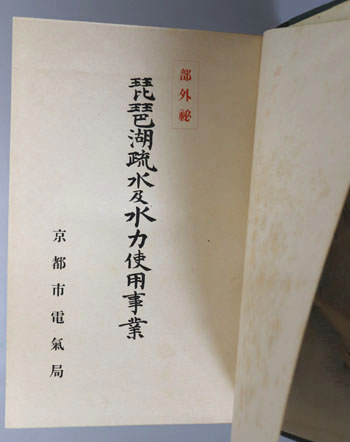 部外秘
琵琶湖疏水及水力使用事業
京都市電氣局